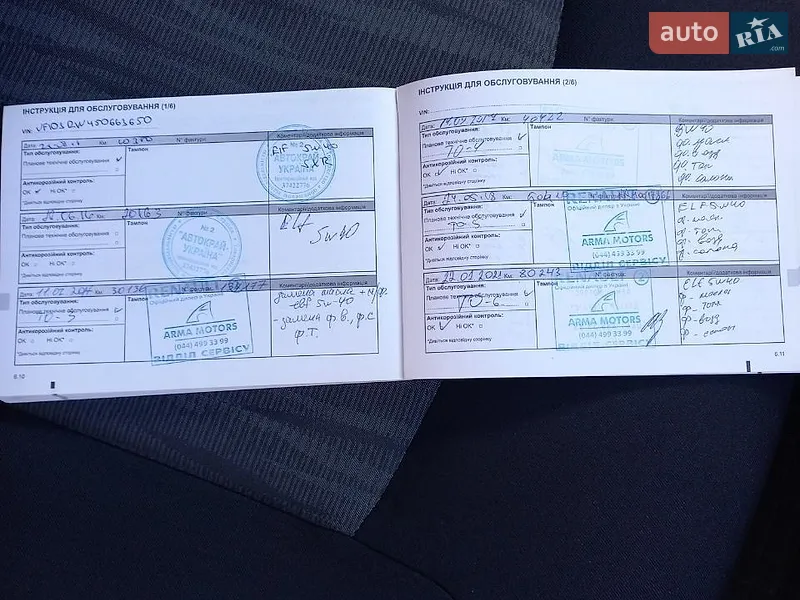 auto RIA .com
ІНСТРУКЦІЯ ДЛЯ ОБСЛУГОВУВАННЯ (1/6)
VIN:
Дата: Км: № фактури Коментарі/додаткова інформація
Тип обслуговування: Тампон
Планове технічне обслуговування
Антикорозійний контроль:
ОК Ні ОК*
*Дивіться відповідну сторінку
№ 2
"АВТОКРАЙ-УКРАЇНА"
ELF 5W40
SXR
Дата: Км: 20163 № фактури Коментарі/додаткова інформація
Тип обслуговування: Тампон
Планове технічне обслуговування
Антикорозійний контроль:
ОК Ні ОК*
*Дивіться відповідну сторінку
№ 2
"АВТОКРАЙ-УКРАЇНА"
Elf
5w40
Дата: 11.02 Км: 3013 Коментарі/додаткова інформація
Тип обслуговування:
Планове технічне обслуговування
ТО-3
Антикорозійний контроль:
ОК Ні ОК*
*Дивіться відповідну сторінку
Офіційний дилер в Україні
ARMA MOTORS
(044) 499 33 99
ВІДДІЛ СЕРВІСУ
замена масла + м/ф.
elf 5w-40
- замена ф.в, ф.с
ф.т.
6.10
ІНСТРУКЦІЯ ДЛЯ ОБСЛУГОВУВАННЯ (2/6)
VIN:
Дата: Км: 40422 № фактури Коментарі/додаткова інформація
Тип обслуговування: Тампон
Планове технічне обслуговування
ТО-4
Антикорозійний контроль:
ОК Ні ОК*
*Дивіться відповідну сторінку
5W40
Дата: 24.05.18 Км: Коментарі/додаткова інформація
Тип обслуговування: Тампон
Планове технічне обслуговування
ТО-5
Антикорозійний контроль:
ОК Ні ОК*
*Дивіться відповідну сторінку
Офіційний дилер в Україні
ARMA MOTORS
(044) 499 33 99
ВІДДІЛ СЕРВІСУ
ELF 5W40
Дата: 22.01.2021 Км: 80243 № фактури Коментарі/додаткова інформація
Тип обслуговування: Тампон
Планове технічне обслуговування
ТО-6
Антикорозійний контроль:
ОК Ні ОК*
*Дивіться відповідну сторінку
Офіційний дилер в Україні
ARMA MOTORS
(044) 499 33 99
ВІДДІЛ СЕРВІСУ
ELF 5W40
ф-масла
ф-топ
ф-возд
ф-салон
6.11